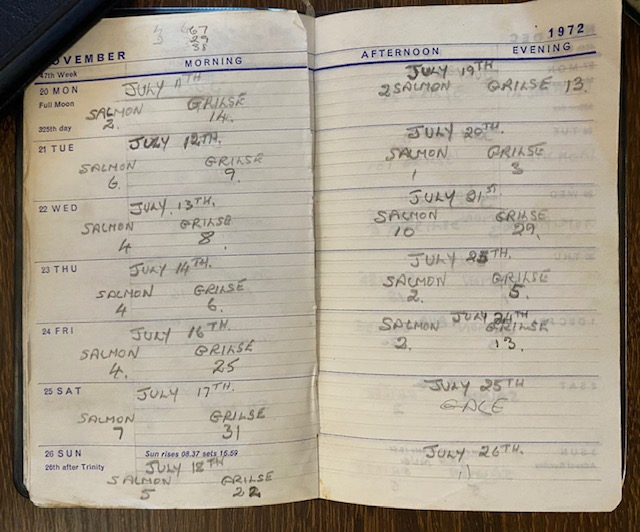 67
29
38
NOVEMBER MORNING
47th Week
20 MON JULY 11TH
Full Moon
SALMON GRILSE
2. 14.
325th day
21 TUE JULY 12TH.
SALMON GRILSE
6. 9.
22 WED JULY 13TH.
SALMON GRILSE
4 8.
23 THU JULY 14TH.
SALMON GRILSE
4 6.
24 FRI JULY 16TH.
SALMON GRILSE
4. 25
25 SAT JULY 17TH.
SALMON GRILSE
7 31
26 SUN Sun rises 08.37 sets 16.59
26th after Trinity JULY 18TH
SALMON GRILSE
5 22
1972
AFTERNOON EVENING
JULY 19TH
2 SALMON GRILSE 13.
JULY 20TH.
SALMON GRILSE
1 3
JULY 21ST.
SALMON GRILSE
10 29.
JULY TH.
SALMON GRILSE
2. 5.
JULY 24TH
SALMON GRILSE
2. 13.
JULY 25TH
GALE
JULY 26TH.